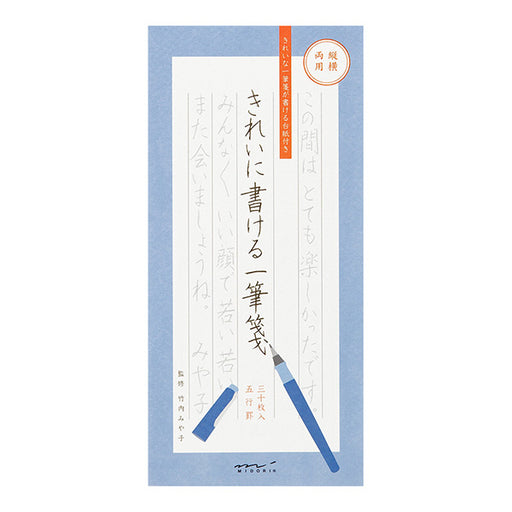 縦横
両用
きれいな一筆箋が書ける台紙付き
この間は とても 楽しかったです。
きれいに書ける一筆箋
みんなく いい顔で若い若い
また 会いましょうね。 みや子
三十枚入
五行罫
監修 竹内みや子
MIDORI